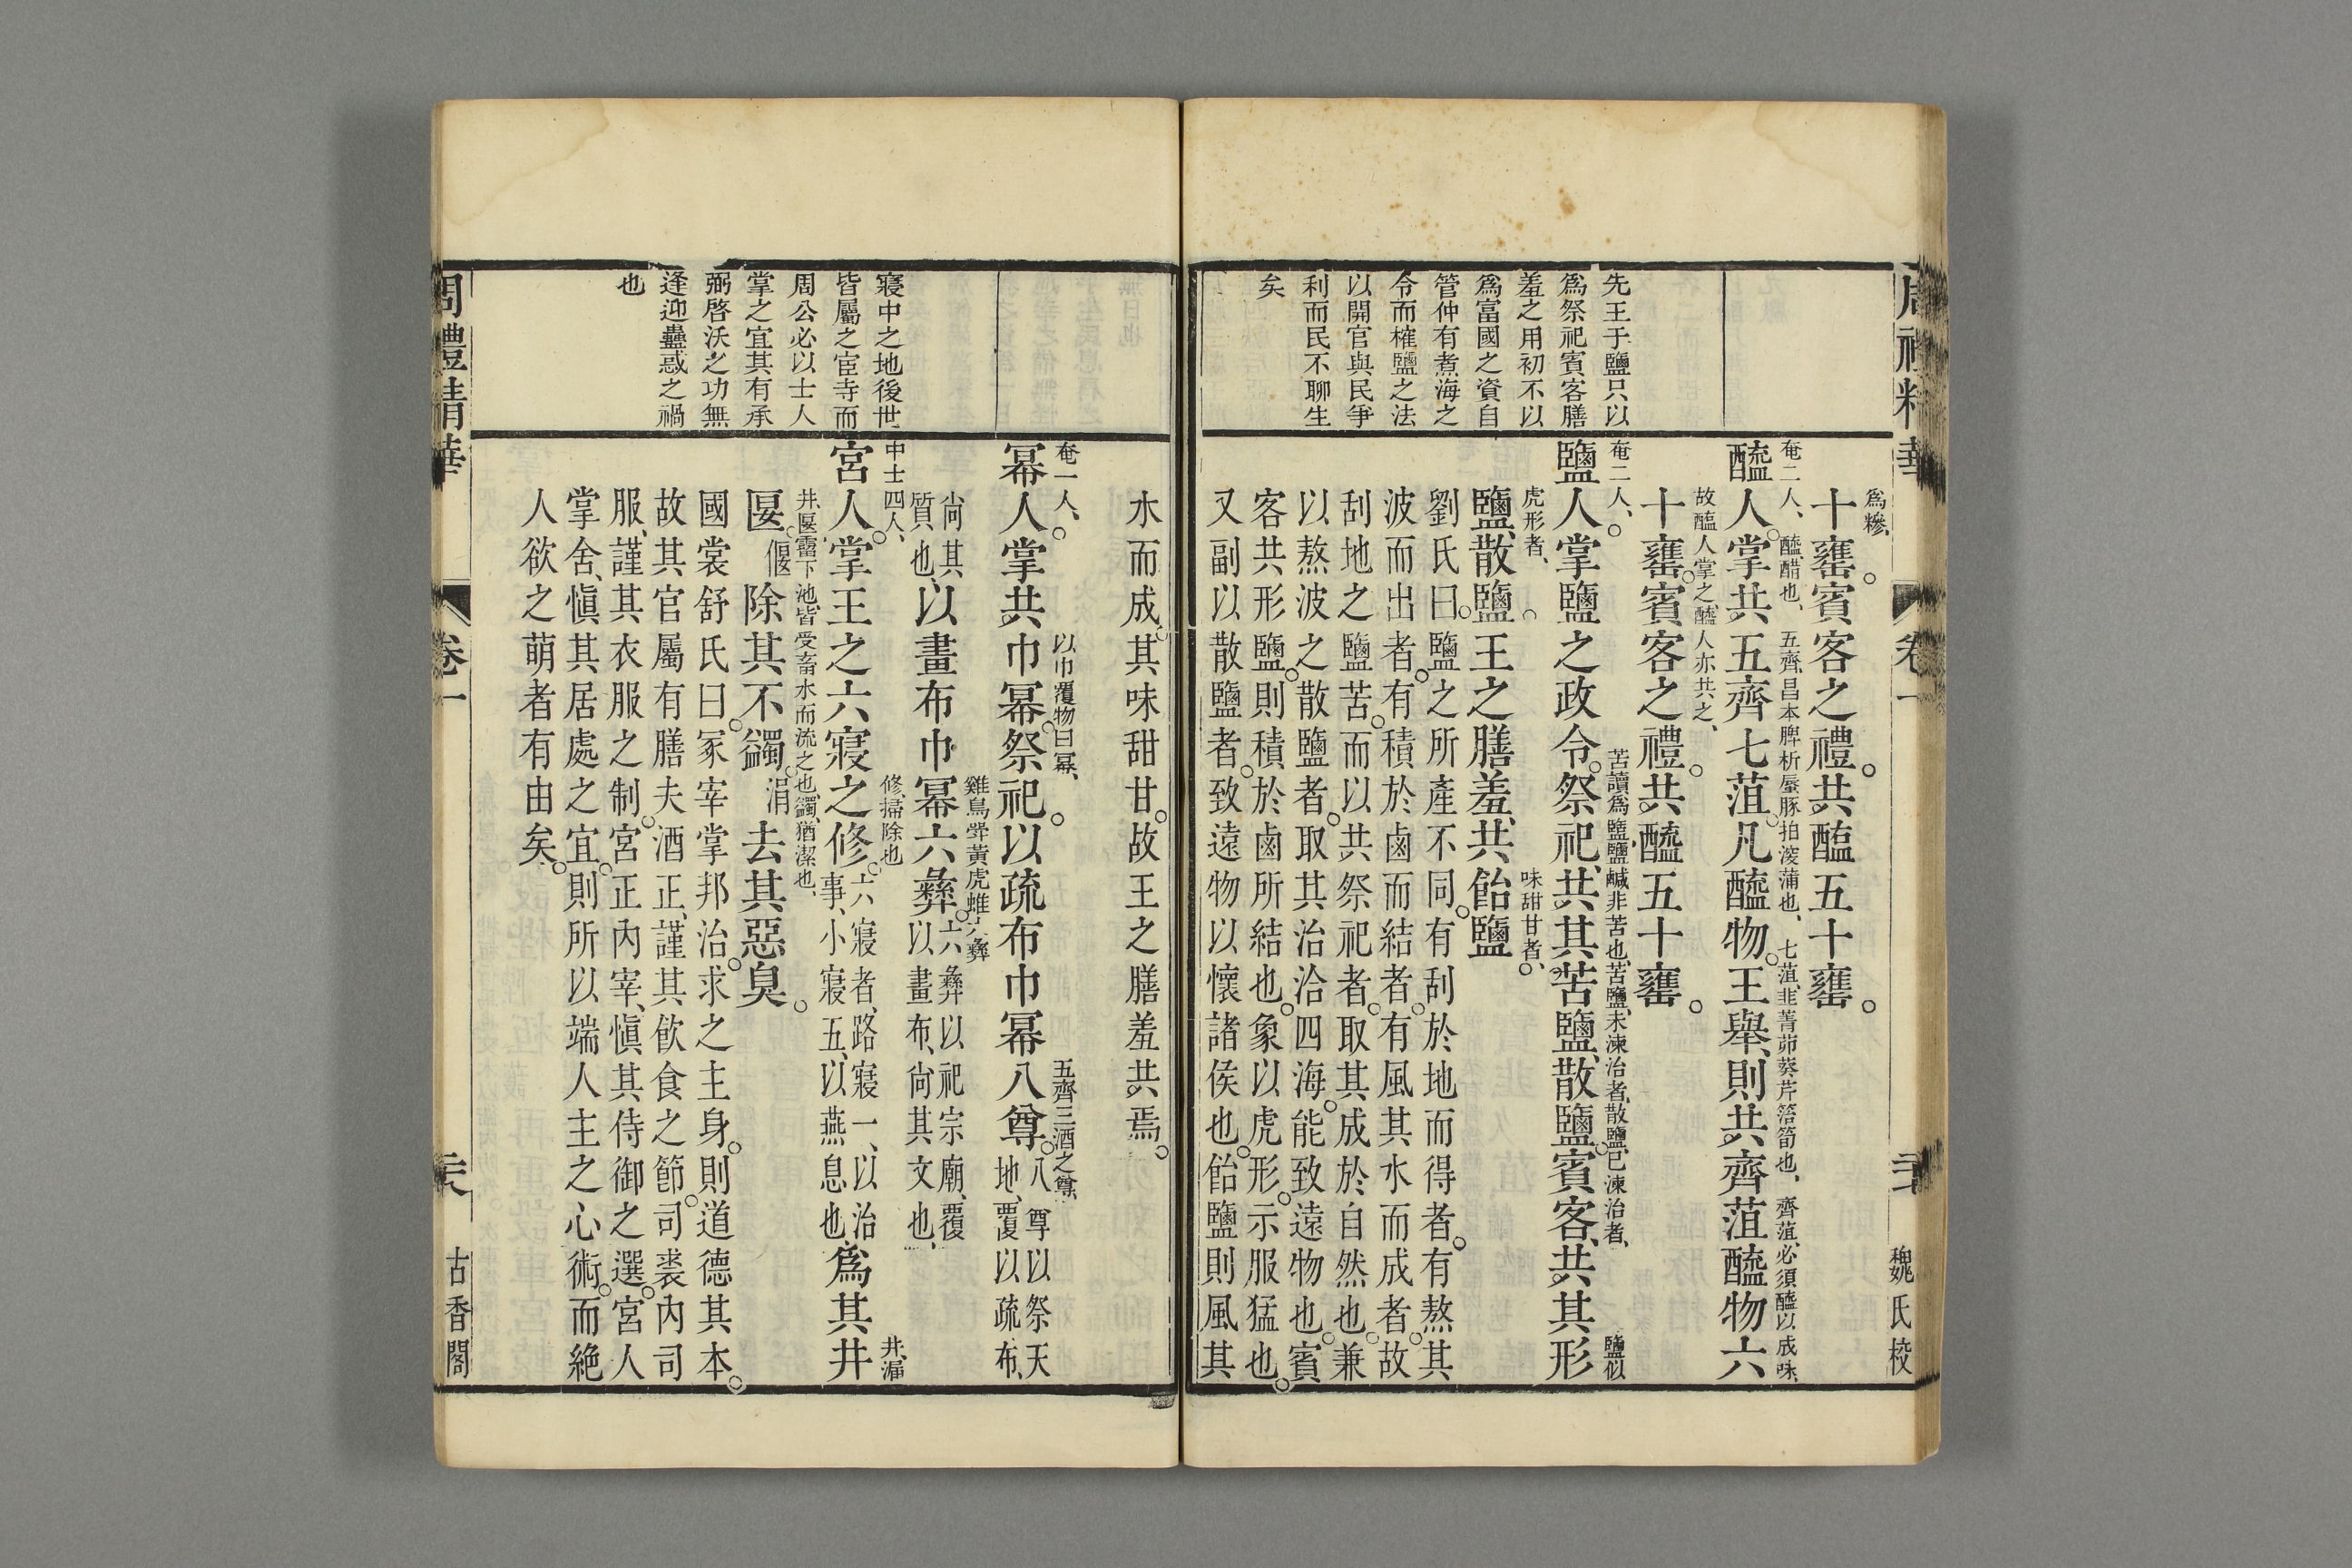 周禮精華
卷一
魏氏校
先王于鹽只以
爲祭祀賓客膳
羞之用初不以
爲富國之資自
管仲有煮海之
令而榷鹽之法
以開官與民爭
利而民不聊生
矣
爲糝、
十罋。賓客之禮。共醢五十罋。
奄二人、醯醋也、五齊昌本脾析蜃豚拍深蒲也、七菹、韭菁茆葵芹箈筍也、齊菹、必須醯以成味、
醯人。掌共五齊七菹。凡醯物。王舉、則共齊菹醯物六
故醢人掌之、醯人亦共之、
十罋。賓客之禮。共醯五十罋。
奄二人、苦讀爲鹽、鹽鹹非苦也、苦鹽、未湅治者、散鹽、已湅治者、鹽似
鹽人。掌鹽之政令。祭祀、共其苦鹽、散鹽。賓客、共其形
虎形者、味甜甘者、
鹽、散鹽。王之膳羞、共飴鹽。
劉氏曰。鹽之所產不同。有刮於地而得者。有熬其
波而出者。有積於鹵而結者。有風其水而成者。故
刮地之鹽苦。而以共祭祀者。取其成於自然也。兼
以熬波之散鹽者。取其治洽四海。能致遠物也。賓
客共形鹽。則積於鹵所結也。象以虎形。示服猛也。
又副以散鹽者。致遠物以懷諸侯也。飴鹽則風其
水而成。其味甜甘。故王之膳羞共焉。
寢中之地後世
皆屬之宦寺而
周公必以士人
掌之宜其有承
弼啓沃之功無
逢迎蠱惑之禍
也
奄一人、以巾覆物曰冪、五齊三酒之尊、
冪人。掌共巾冪。祭祀。以疏布巾冪八尊。八尊以祭天地、覆以疏布、
雞鳥斝黃虎蜼六彝
尙其質也、以畫布巾冪六彝。六彝以祀宗廟、覆以畫布、尙其文也、
中士四人、修、掃除也井、漏
宮人。掌王之六寢之修。六寢者、路寢一、以治事、小寢五、以燕息也、爲其井
井、匽、霤下池、皆受畜水而流之也、蠲、猶潔也、
匽。偃除其不蠲。涓去其惡臭。
國裳舒氏曰。冢宰掌邦治。求之主身。則道德其本。
故其官屬有膳夫酒正、謹其飮食之節。司裘內司
服、謹其衣服之制。宮正內宰、愼其侍御之選。宮人
掌舍、愼其居處之宜。則所以端人主之心術。而絶
人欲之萌者有由矣。
周禮精華
卷一
古香閣